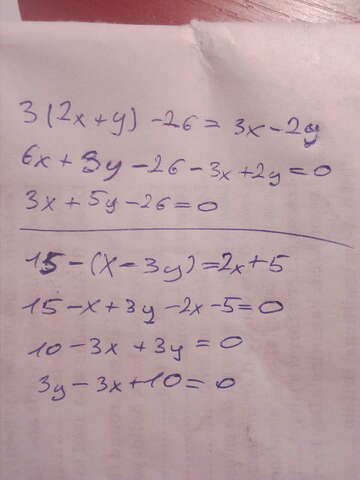 3(2x+y)-26=3x-2y
6x+3y-26-3x+2y=0
3x+5y-26=0
15-(x-3y)=2x+5
15-x+3y-2x-5=0
10-3x+3y=0
3y-3x+10=0